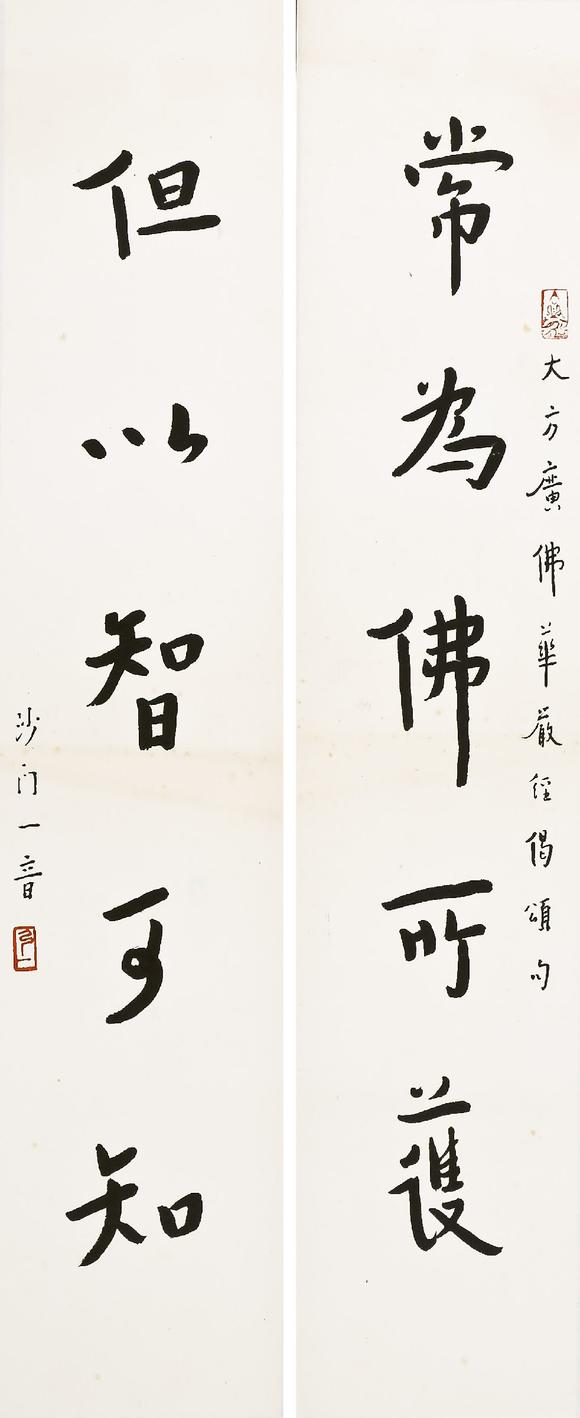 大方廣佛華嚴經偈頌句
常為佛所護
但以智可知
沙門一音
弘一